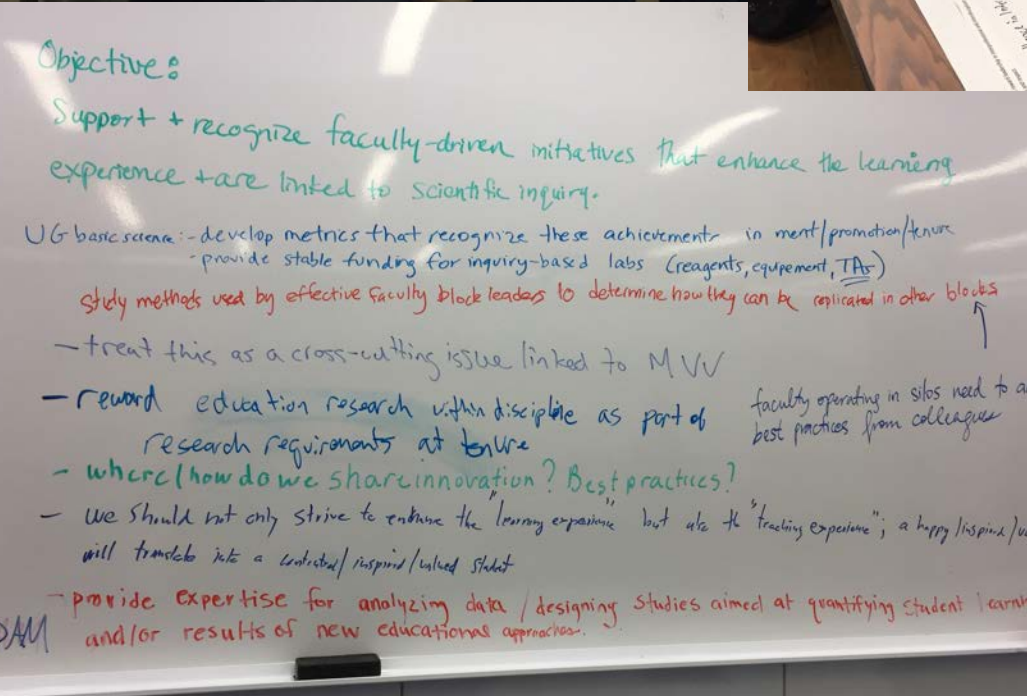 Objective:
Support + recognize faculty-driven initiatives that enhance the learning
experience + are linked to scientific inquiry.
UG basic science: - develop metrics that recognize these achievements in merit/promotion/tenure
- provide stable funding for inquiry-based labs (reagents, equipement, TAs)
study methods used by effective faculty block leaders to determine how they can be replicated in other blocks
- treat this as a cross-cutting issue linked to MVV
- reward education research within discipline as part of
research requirements at tenure
faculty operating in silos need to
best practices from colleagues
- where/how do we share innovation? Best practices?
- we should not only strive to enhance the "learning experience" but also the "teaching experience"; a happy/inspired/
will translate into a contented/inspired/valued student
- provide expertise for analyzing data / designing studies aimed at quantifying student
and/or results of new educational approaches.